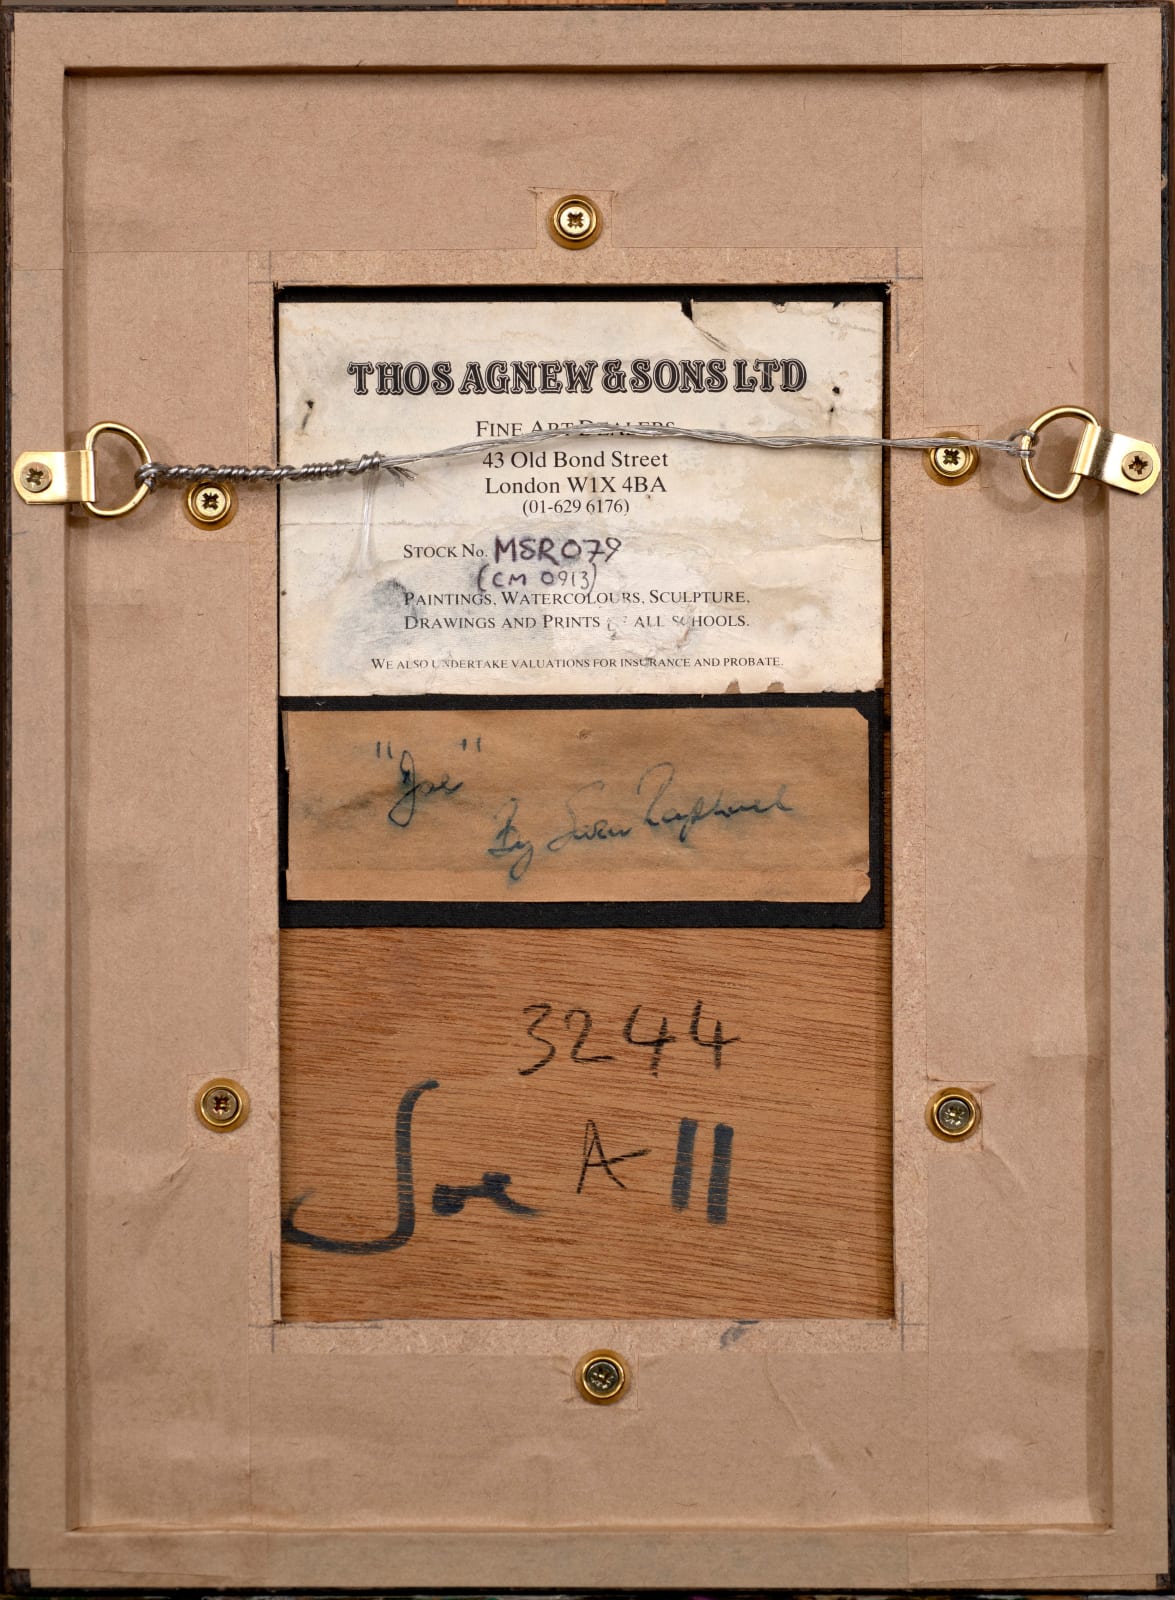 THOS AGNEW & SONS LTD
FINE ART DEALERS
43 Old Bond Street
London W1X 4BA
(01-629 6176)
STOCK No. MSR079
(CM 0913)
PAINTINGS, WATERCOLOURS, SCULPTURE,
DRAWINGS AND PRINTS OF ALL SCHOOLS.
WE ALSO UNDERTAKE VALUATIONS FOR INSURANCE AND PROBATE.
"Joe"
By
3244
Joe A-11